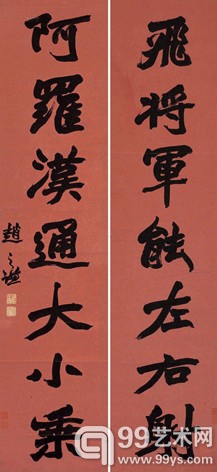 飛將軍能左右射
阿羅漢通大小乘
趙之謙
99艺术网
www.99ys.com